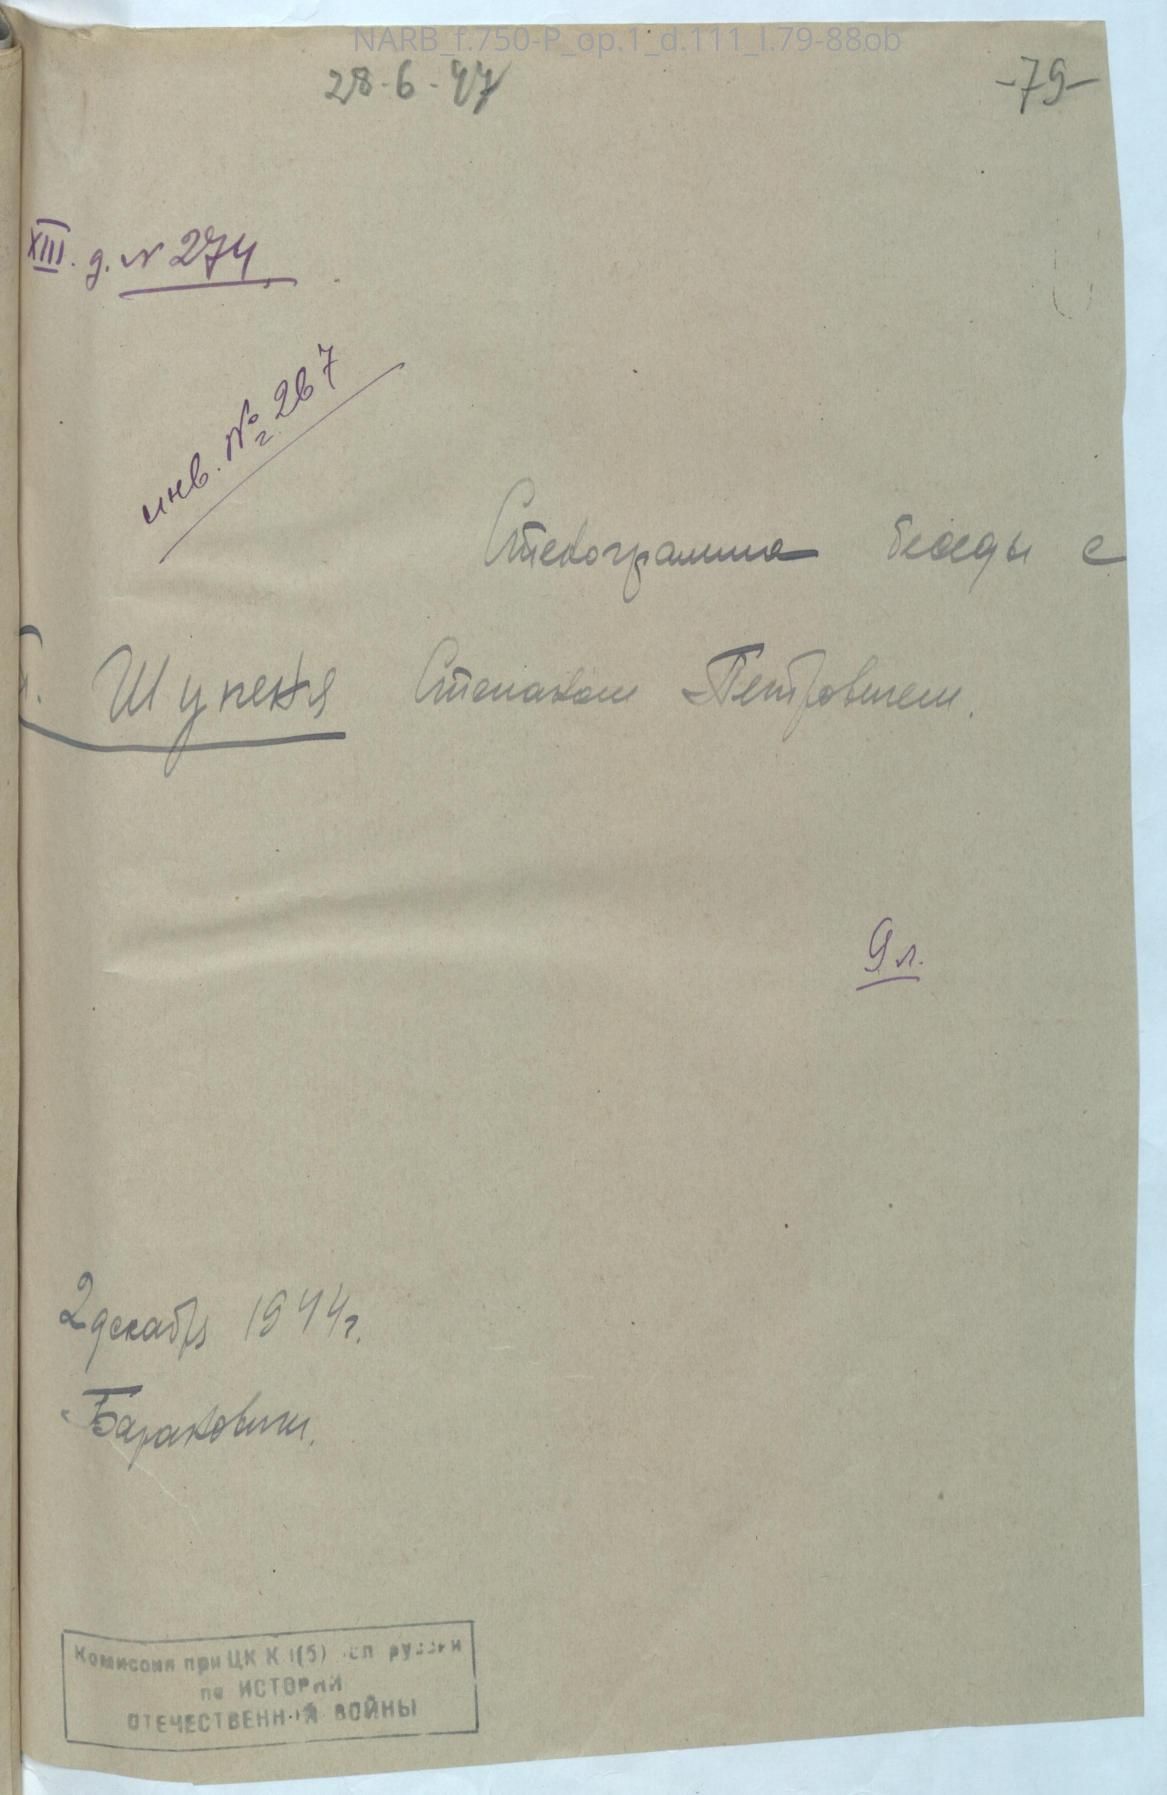 NARB_f.750-P_op.1_d.111_l.79-88ob
28-6-47
-79-
XIII. д. № 274
инв. № 267
Стенограмма беседы с
т. Шупеня Степаном Петровичем.
9 л.
2 декабря 1944 г.
Барановичи.
Комиссия при ЦК К П(б) Белоруссии
по ИСТОРИИ
ОТЕЧЕСТВЕННОЙ ВОЙНЫ